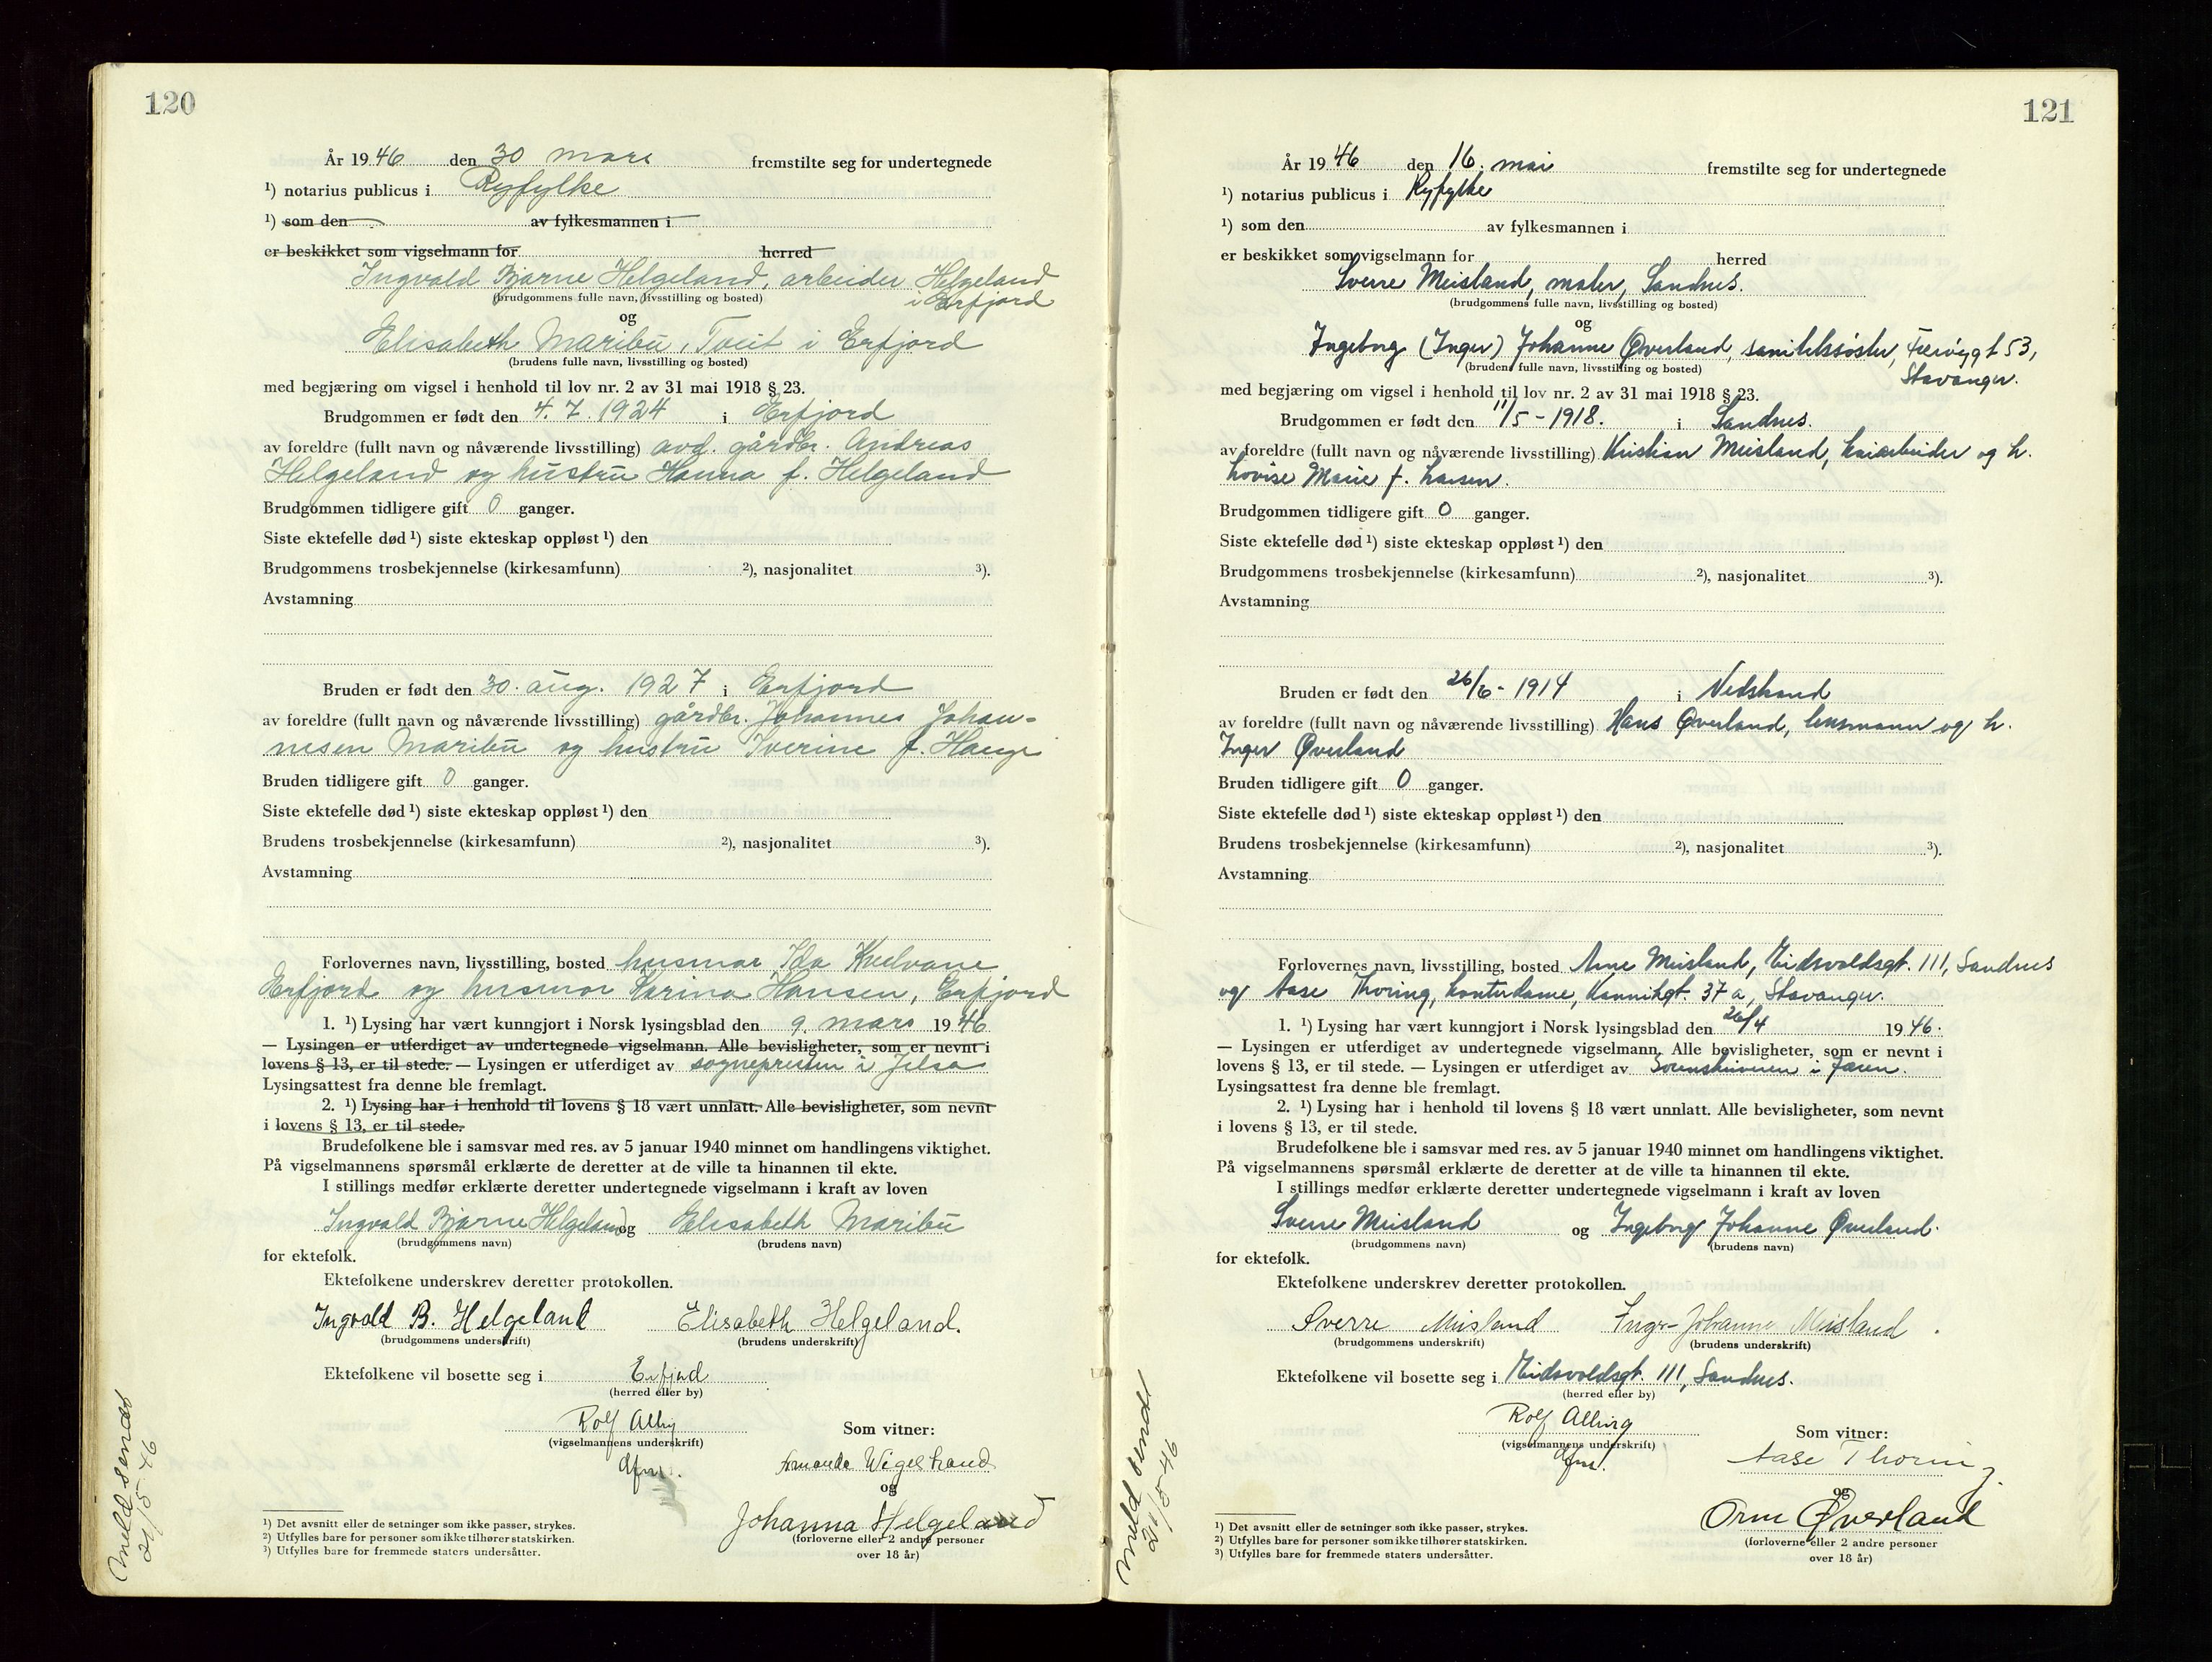 120
År 1946 den 30 mars fremstilte seg for undertegnede
¹) notarius publicus i Ryfylke
¹) som den av fylkesmannen i
er beskikket som vigselmann for herred
Ingvald Bjarne Helgeland, arbeider Helgeland
i Erfjord
(brudgommens fulle navn, livsstilling og bosted)
og
Elisabeth Maribu, Tveit i Erfjord
(brudens fulle navn, livsstilling og bosted)
med begjæring om vigsel i henhold til lov nr. 2 av 31 mai 1918 § 23.
Brudgommen er født den 4. 7. 1924 i Erfjord
av foreldre (fullt navn og nåværende livsstilling) avd. gårdbr. Andreas
Helgeland og hustru Hanna f. Helgeland
Brudgommen tidligere gift 0 ganger.
Siste ektefelle død¹) siste ekteskap oppløst¹) den
Brudgommens trosbekjennelse (kirkesamfunn) ²), nasjonalitet ³).
Avstamning
Bruden er født den 30. aug. 1927 i Erfjord
av foreldre (fullt navn og nåværende livsstilling) gårdbr. Johannes Johan-
nesen Maribu og hustru Iverine f. Hauge
Bruden tidligere gift 0 ganger.
Siste ektefelle død¹) siste ekteskap oppløst¹) den
Brudens trosbekjennelse (kirkesamfunn) ²), nasjonalitet ³).
Avstamning
Forlovernes navn, livsstilling, bosted husmor Ida Kvelvane
Erfjord og husmor Karina Hansen, Erfjord
1. ¹) Lysing har vært kunngjort i Norsk lysingsblad den 9. mars 1946
— Lysingen er utferdiget av undertegnede vigselmann. Alle bevisligheter, som er nevnt i
lovens § 13, er til stede. — Lysingen er utferdiget av sognepresten i Jelsa
Lysingsattest fra denne ble fremlagt.
2. ¹) Lysing har i henhold til lovens § 18 vært unnlatt. Alle bevisligheter, som nevnt
i lovens § 13, er til stede.
Brudefolkene ble i samsvar med res. av 5 januar 1940 minnet om handlingens viktighet.
På vigselmannens spørsmål erklærte de deretter at de ville ta hinannen til ekte.
I stillings medfør erklærte deretter undertegnede vigselmann i kraft av loven
Ingvald Bjarne Helgeland og Elisabeth Maribu
(brudgommens navn) (brudens navn)
for ektefolk.
Ektefolkene underskrev deretter protokollen.
Ingvald B. Helgeland Elisabeth Helgeland.
(brudgommens underskrift) (brudens underskrift)
Ektefolkene vil bosette seg i Erfjord
(herred eller by)
Rolf Albrig Som vitner:
(vigselmannens underskrift)
Amanda Wigestrand
og
Johanna Helgeland
(forloverne eller 2 andre personer
over 18 år)
¹) Det avsnitt eller de setninger som ikke passer, strykes.
²) Utfylles bare for personer som ikke tilhører statskirken.
³) Utfylles bare for fremmede staters undersåtter.
Meld. sendt
21/5-46
121
År 1946 den 16. mai fremstilte seg for undertegnede
¹) notarius publicus i Ryfylke
¹) som den av fylkesmannen i
er beskikket som vigselmann for herred
Sverre Meisland, maler, Sandnes.
(brudgommens fulle navn, livsstilling og bosted)
og
Ingeborg (Inger) Johanne Øverland, sanitetssøster, 53,
Stavanger.
(brudens fulle navn, livsstilling og bosted)
med begjæring om vigsel i henhold til lov nr. 2 av 31 mai 1918 § 23.
Brudgommen er født den 11/5 - 1918. i Sandnes.
av foreldre (fullt navn og nåværende livsstilling) Kristian Meisland, kaiarbeider og h.
Lovise Marie f. Larsen.
Brudgommen tidligere gift 0 ganger.
Siste ektefelle død¹) siste ekteskap oppløst¹) den
Brudgommens trosbekjennelse (kirkesamfunn) ²), nasjonalitet ³).
Avstamning
Bruden er født den 26/6 - 1914 i Nedstrand
av foreldre (fullt navn og nåværende livsstilling) Hans Øverland, lensmann og h.
Inger Øverland
Bruden tidligere gift 0 ganger.
Siste ektefelle død¹) siste ekteskap oppløst¹) den
Brudens trosbekjennelse (kirkesamfunn) ²), nasjonalitet ³).
Avstamning
Forlovernes navn, livsstilling, bosted Arne Meisland, Eidsvoldsgt. 111, Sandnes
og Aase Thoring, kontordame, Kannikgt. 37 a, Stavanger.
1. ¹) Lysing har vært kunngjort i Norsk lysingsblad den 26/4 1946.
— Lysingen er utferdiget av undertegnede vigselmann. Alle bevisligheter, som er nevnt i
lovens § 13, er til stede. — Lysingen er utferdiget av Sorenskriveren i Jæren.
Lysingsattest fra denne ble fremlagt.
2. ¹) Lysing har i henhold til lovens § 18 vært unnlatt. Alle bevisligheter, som nevnt
i lovens § 13, er til stede.
Brudefolkene ble i samsvar med res. av 5 januar 1940 minnet om handlingens viktighet.
På vigselmannens spørsmål erklærte de deretter at de ville ta hinannen til ekte.
I stillings medfør erklærte deretter undertegnede vigselmann i kraft av loven
Sverre Meisland og Ingeborg Johanne Øverland.
(brudgommens navn) (brudens navn)
for ektefolk.
Ektefolkene underskrev deretter protokollen.
Sverre Meisland Inger-Johanne Meisland.
(brudgommens underskrift) (brudens underskrift)
Ektefolkene vil bosette seg i Eidsvoldsgt. 111, Sandnes.
(herred eller by)
Rolf Albrig Som vitner:
(vigselmannens underskrift)
Aase Thoring
og
Orm Øverland
(forloverne eller 2 andre personer
over 18 år)
¹) Det avsnitt eller de setninger som ikke passer, strykes.
²) Utfylles bare for personer som ikke tilhører statskirken.
³) Utfylles bare for fremmede staters undersåtter.
Meld. sendt
21/5-46